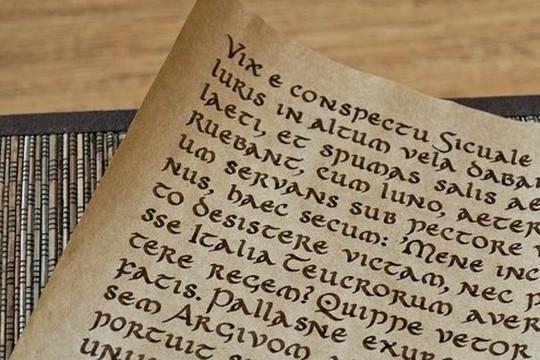 Vix e conspectu Sicuale
luris in altum vela daban
laeti, et spumas salis ae
ruebant, cum Iuno, aeter
um servans sub pectore v
nus, haec secum: 'Mene inc
to desistere victam, nec p
sse Italia Teucrorum aver
tere regem? Quippe vetor
fatis. Pallasne exur
sem Argivom
portuit